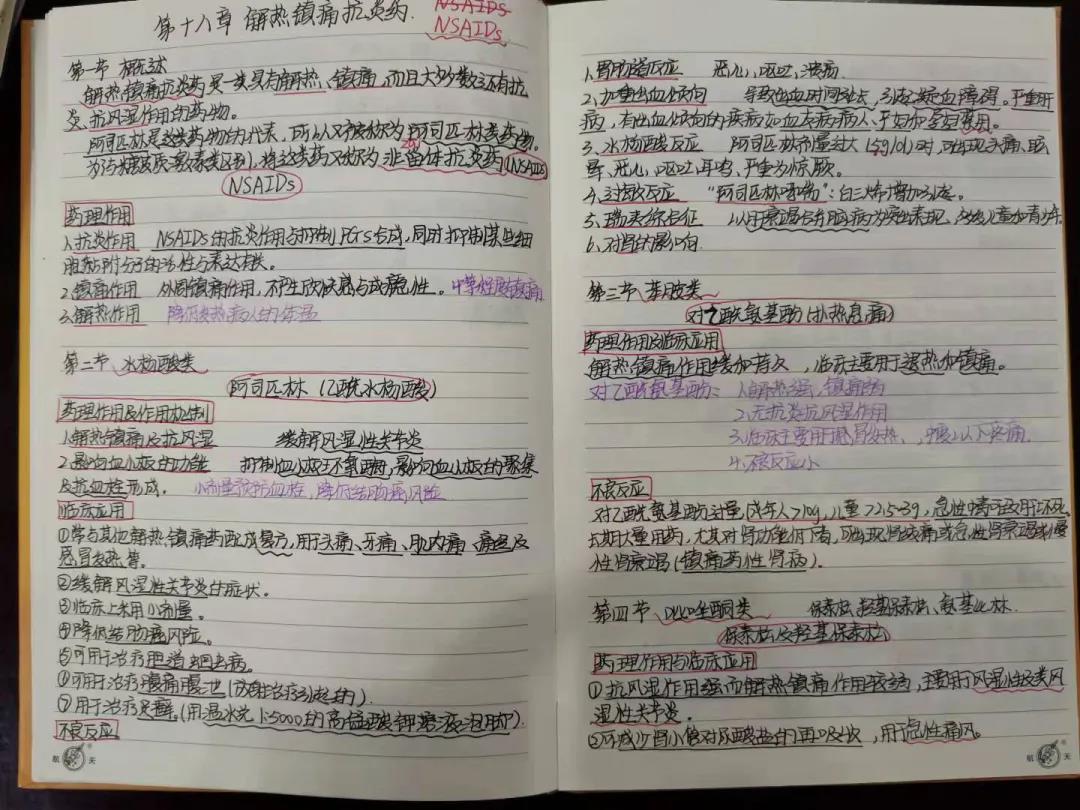 第十八章 解热镇痛抗炎药.
NSAIDs
NSAIDs
第一节 概述
解热镇痛抗炎药是一类具有解热、镇痛,而且大多数还有抗
炎、抗风湿作用的药物。
阿司匹林是这类药物的代表,所以又被称为阿司匹林类药物。
为与糖皮质激素类区别,将这类药又称为非甾体抗炎药(NSAID)
NSAIDs
药理作用
1.抗炎作用 NSAIDs的抗炎作用与抑制PGS合成,同时抑制某些细
胞黏附分子的活性与表达有关。
2.镇痛作用 外周镇痛作用,不产生欣快感与成瘾性。中等程度镇痛
3.解热作用 降低发热病人的体温
第二节、水杨酸类
阿司匹林(乙酰水杨酸)
药理作用及作用机制
1.解热镇痛及抗风湿 缓解风湿性关节炎
2.影响血小板的功能 抑制血小板环氧酶,影响血小板的聚集
及抗血栓形成. 小剂量预防血栓,降低结肠癌风险
临床应用
①常与其他解热镇痛药配成复方,用于头痛、牙痛、肌肉痛、痛经及
感冒发热等。
②缓解风湿性关节炎的症状。
③临床上采用小剂量。
④降低结肠癌风险。
⑤可用于治疗胆道蛔虫病。
⑥可用于治疗腹痛腹泄(放射治疗引起的).
⑦用于治疗足癣。(用温水洗1:5000的高锰酸钾溶液泡脚).
不良反应
航天
1.胃肠道反应 恶心,呕吐,溃疡.
2.加重出血倾向 导致出血时间延长,引起凝血障碍。严重肝
病,有出血倾向的疾病如血友病病人、产妇和孕妇禁用。
3.水杨酸反应 阿司匹林剂量过大(5g/d)时,可出现头痛、眩
晕、恶心、呕吐、耳鸣,严重为惊厥。
4.过敏反应 “阿司匹林哮喘”:白三烯增加引起。
5.瑞夷综合征 以肝衰竭合并脑病为突出表现,多见儿童和青少年。
6.对肾的影响
第三节、苯胺类
对乙酰氨基酚(扑热息痛)
药理作用及临床应用
解热镇痛作用缓和持久,临床主要用于退热和镇痛。
对乙酰氨基酚: 1.解热强,镇痛弱
2.无抗炎抗风湿作用
3.临床主要用于感冒发热、中度以下疼痛
4.不良反应小
不良反应
对乙酰氨基酚过量(成年人>10g,儿童>2.5~3g,急性中毒可致肝坏死.
长期大量用药,尤其对肾功能低下者,可出现肾绞痛或急性肾衰竭或慢
性肾衰竭(镇痛药性肾病).
第四节、吡唑酮类 保泰松、羟基保泰松、氨基比林.
保泰松及羟基保泰松
药理作用与临床应用
①抗风湿作用强而解热镇痛作用较弱,主要用于风湿性及类风
湿性关节炎。
②可减少肾小管对尿酸盐的再吸收,用于急性痛风。
航天